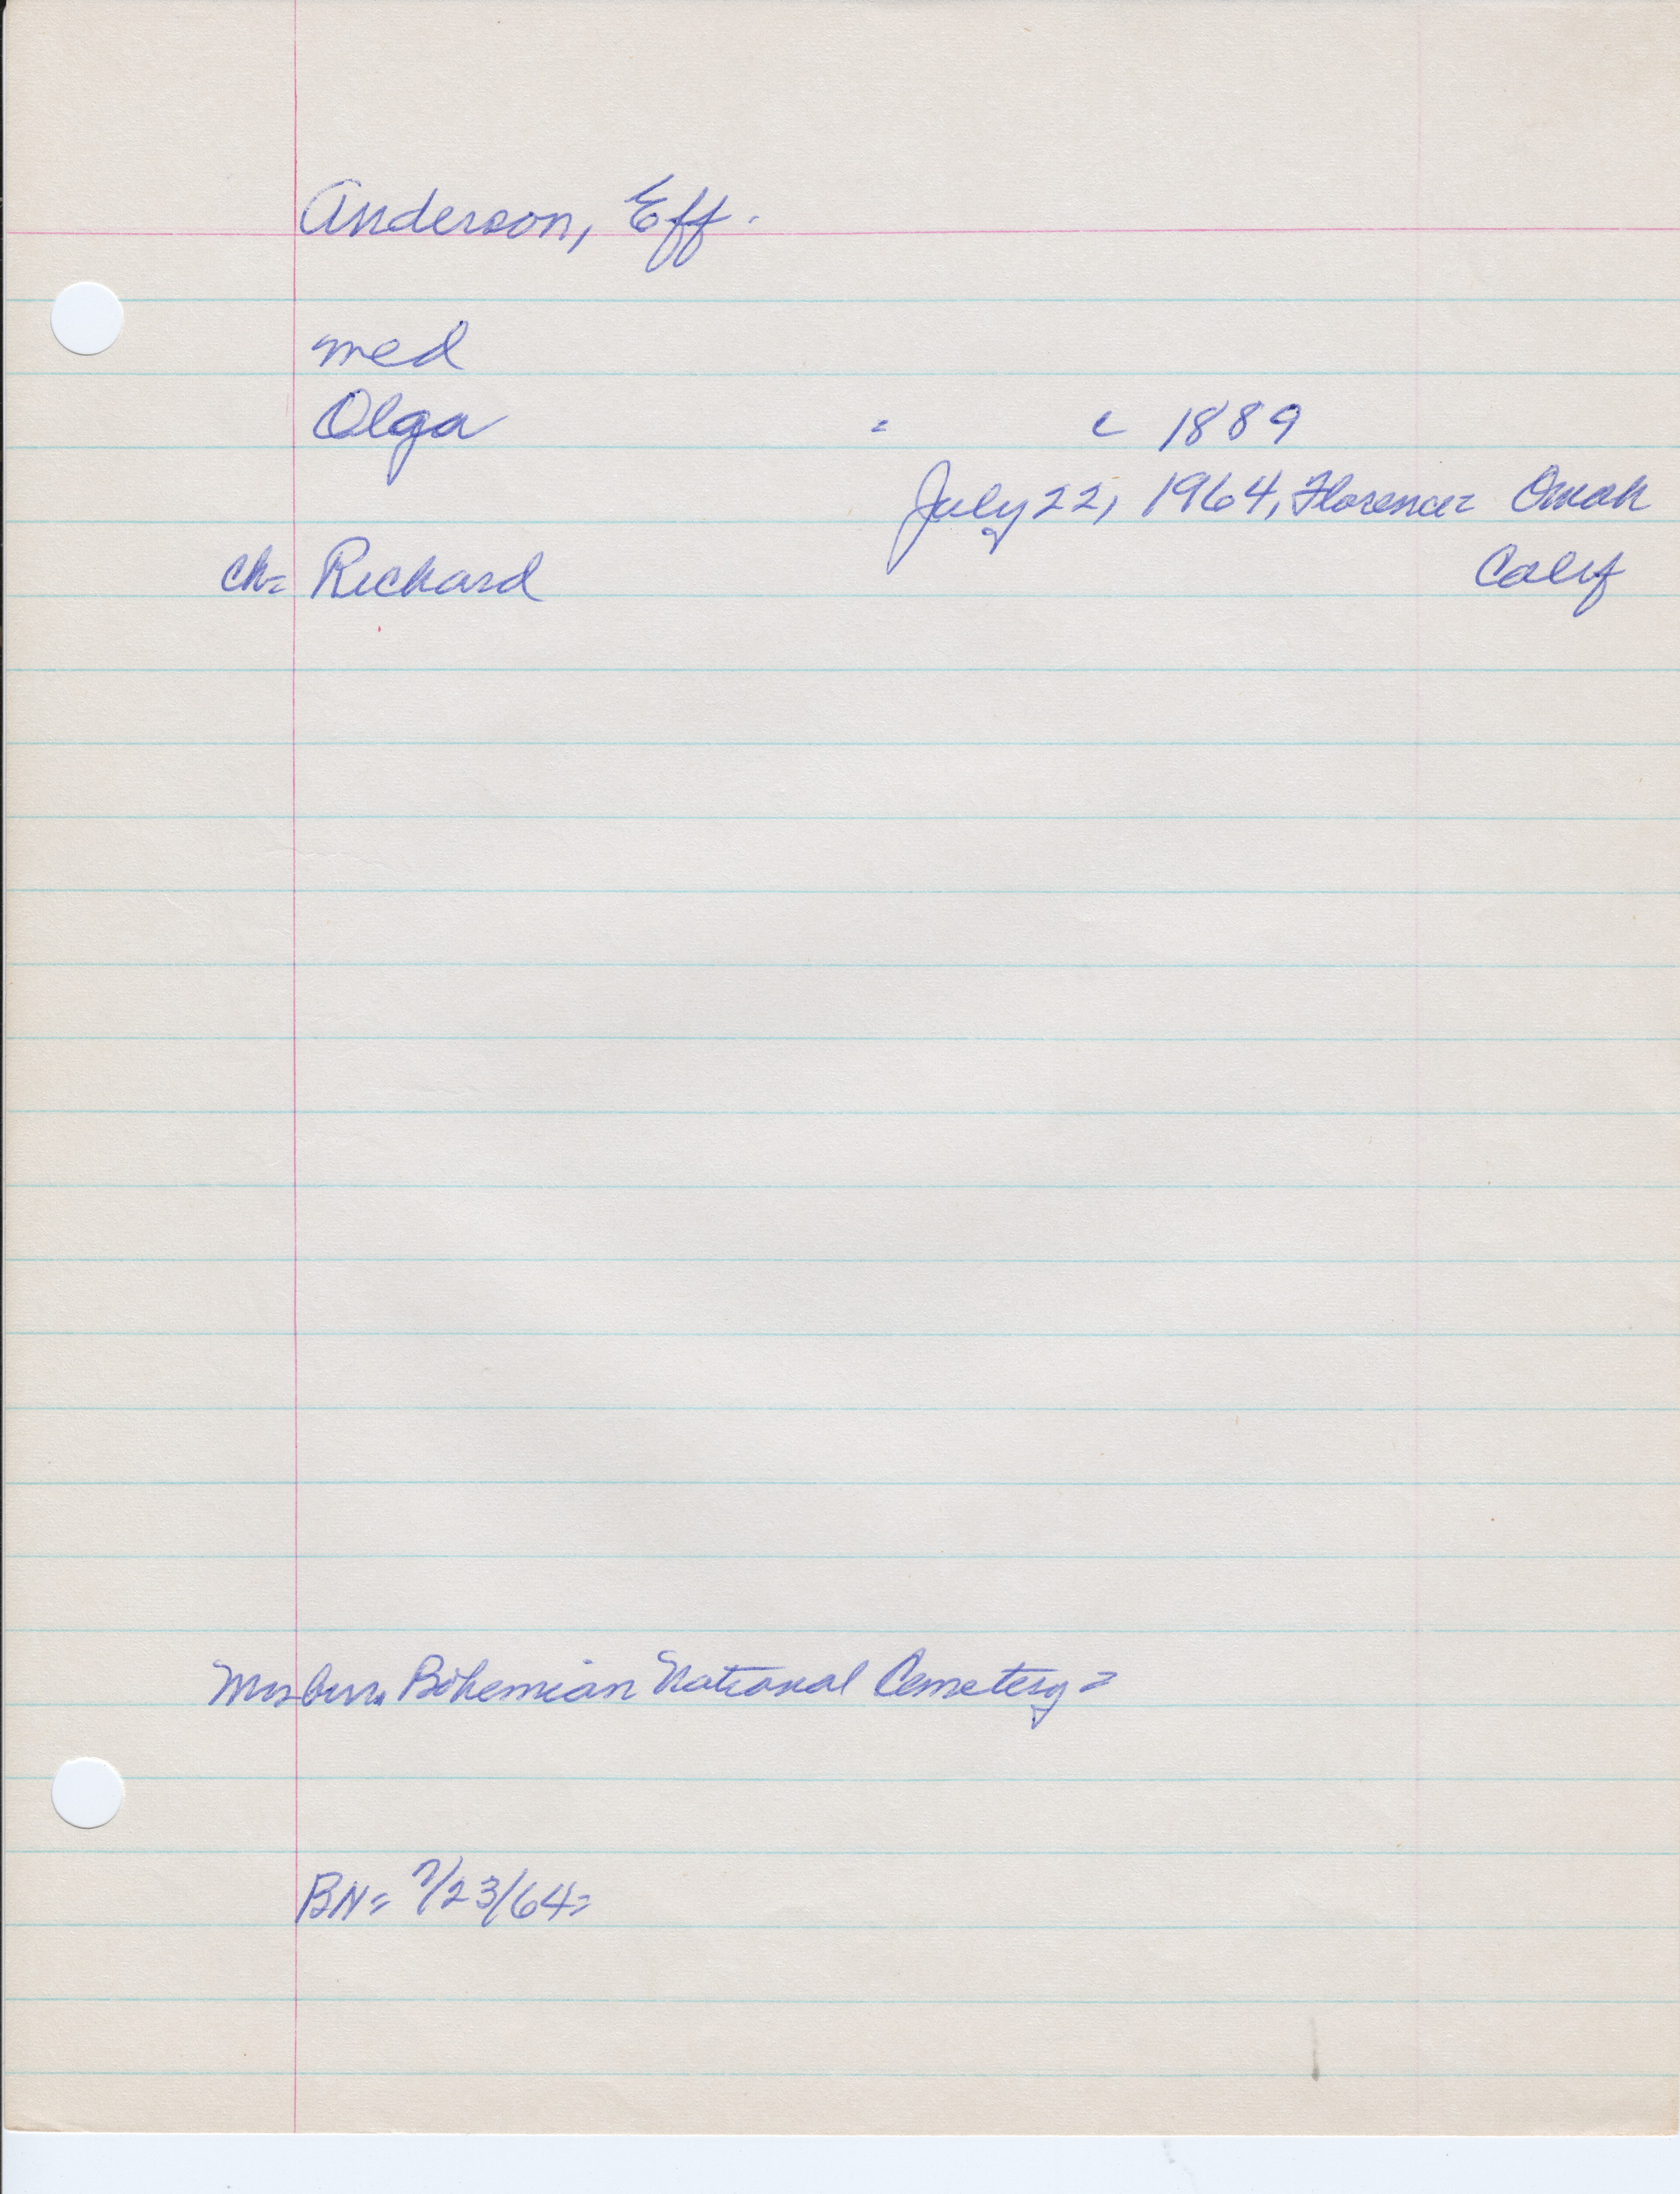 Anderson, Eff.
med
Olga - c 1889
July 22, 1964, Florence Omah
ch= Richard Calif
Bohemian National Cemetery=
BN= 7/23/64=